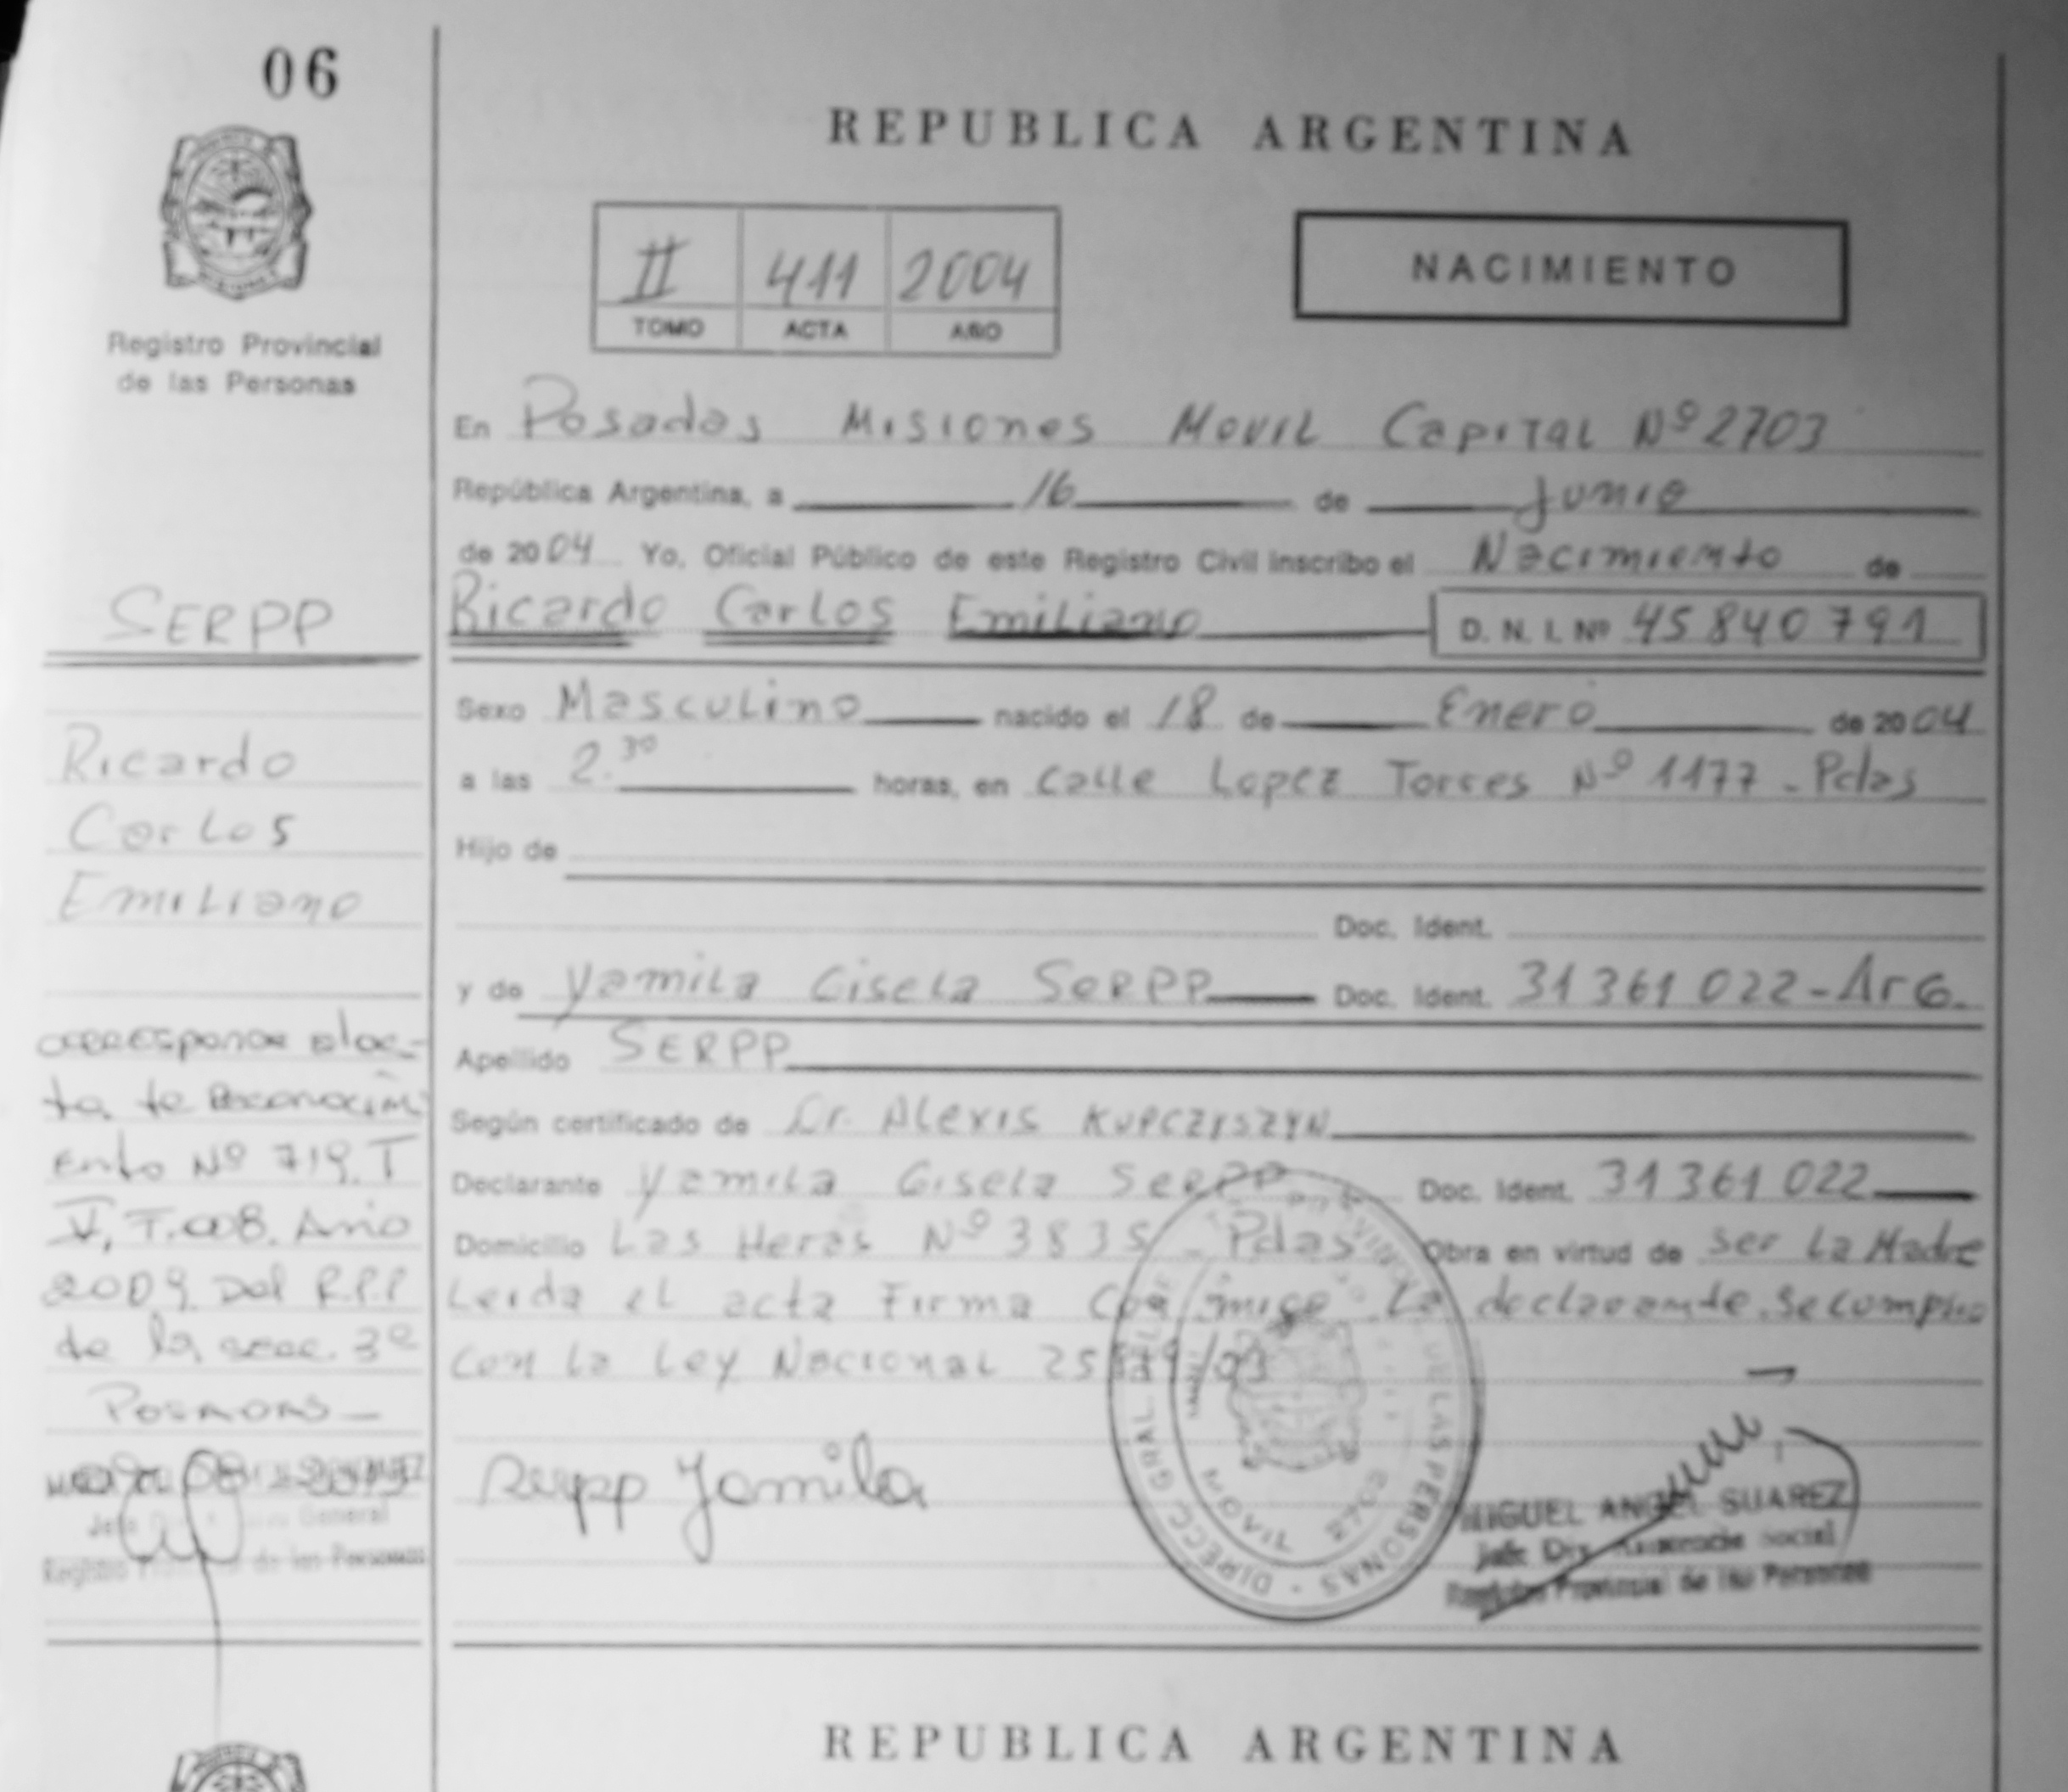 06
REPUBLICA ARGENTINA
II 411 2004
TOMO ACTA AÑO
NACIMIENTO
Registro Provincial
de las Personas
En Posadas Misiones Movil Capital Nº 2703
República Argentina, a 16 de Junio
de 2004 Yo, Oficial Público de este Registro Civil inscribo el Nacimiento de
SERPP
Ricardo Carlos Emiliano D. N. I. Nº 45 840 791
Sexo Masculino nacido el 18 de Enero de 2004
a las 2.30 horas, en Calle Lopez Torres Nº 1177 - Pdas
Hijo de
Doc. Ident.
y de Yamila Gisela SERPP Doc. Ident. 31 361 022 - Arg.
Apellido SERPP
Según certificado de Dr. Alexis KUPCZYSZYN
Declarante Yamila Gisela SERPP Doc. Ident. 31 361 022
Domicilio Las Heras Nº 3835 - Pdas Obra en virtud de ser la Madre
Leida el acta Firma Conmigo La declarante. Se cumplio
con la Ley Nacional 25
Ricardo
Carlos
Emiliano
corresponde al ac-
ta de Reconocimi
ento Nº 719. T
V, T. Año
2009. Del R.P.P
de la secc. 3ª
Posadas
General
Registro de las Personas
Serpp Yamila
DIRECC GRAL. DE LAS PERSONAS
MOVIL 2703
MIGUEL ANGEL SUAREZ
Jefe Dto. Asistencia Social
Registro Provincial de las Personas
REPUBLICA ARGENTINA